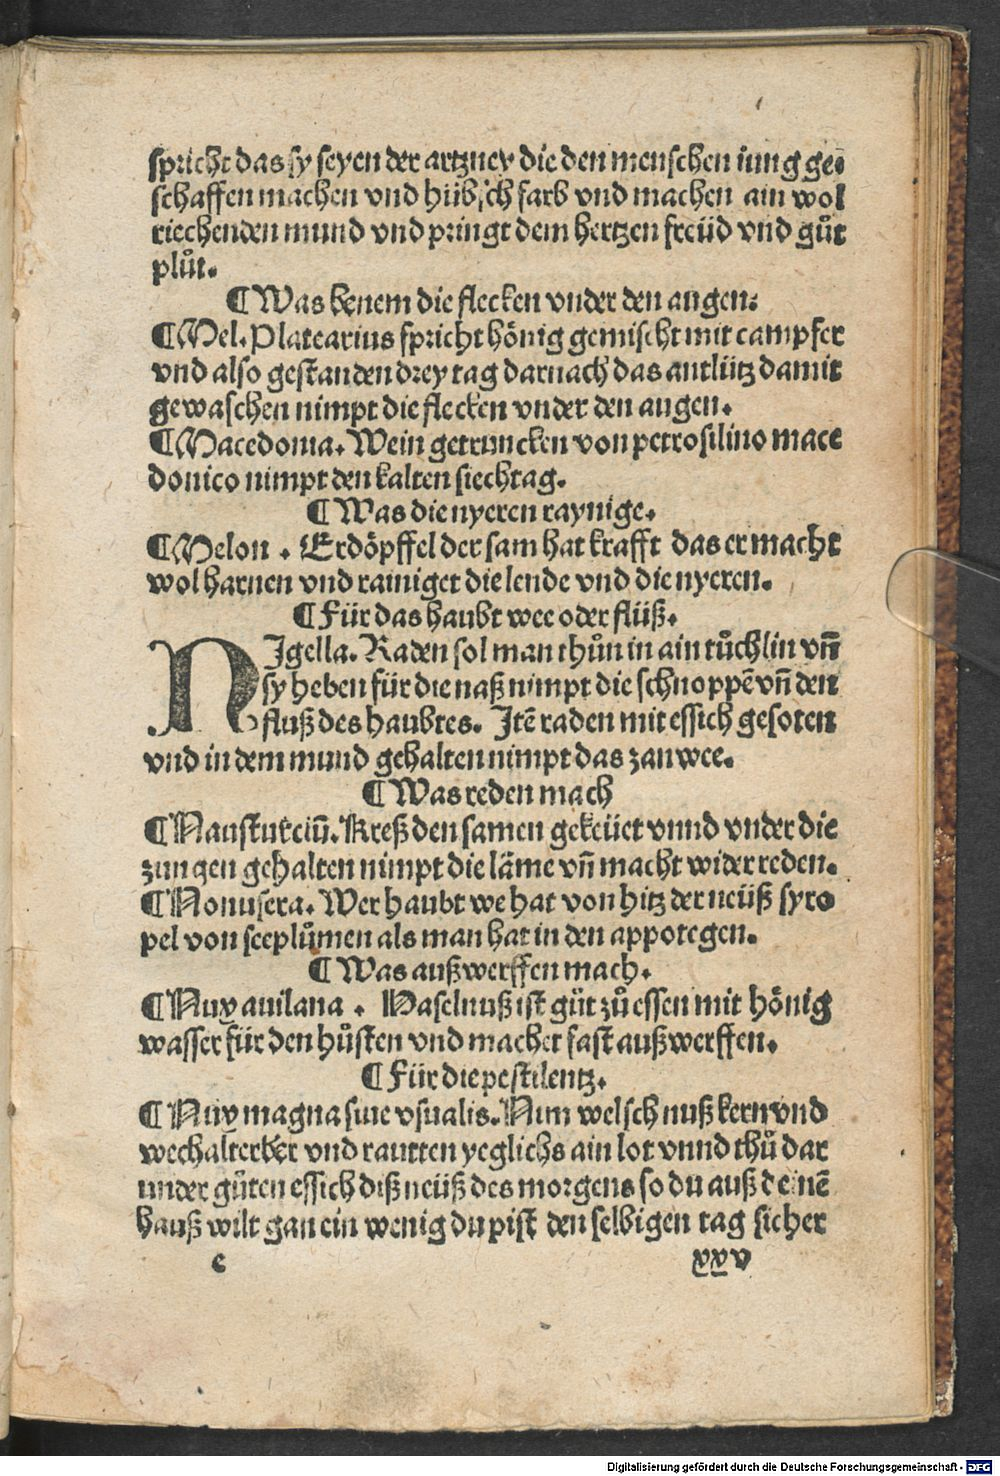 spricht das sy seyen der artzney die den menschen iung ge⸗
schaffen machen vnd hübsch farb vnd machen ain wol
riechenden mund vnd pringt dem hertzen freüd vnd gůt
plůt.
¶ Was benem die flecken vnder den augen.
¶ Mel. Platearius spricht hönig gemischt mit campfer
vnd also gestanden drey tag darnach das antlütz damit
gewaschen nimpt die flecken vnder den augen.
¶ Macedonia. Wein getruncken von petrosilino mace
donico nimpt den kalten siechtag.
¶ Was die nyeren raynige.
¶ Melon . Erdöpffel der sam hat krafft das er macht
wol harnen vnd rainiget die lende vnd die nyeren.
¶ Für das haubt wee oder flüß.
NIgella. Raden sol man thůn in ain tůchlin vñ
sy heben für die naß nimpt die schnoppē vñ den
fluß des haubtes. Itē raden mit essich gesoten
vnd in dem mund gehalten nimpt das zan wee.
¶ Was reden mach
¶ Naustutciū. Kreß den samen gekeüet vnnd vnder die
zungen gehalten nimpt die läme vñ macht wider reden.
¶ Nonufera. Wer haubt we hat von hitz der neüß syro
pel von seeplůmen als man hat in den appotegen.
¶ Was außwerffen mach.
¶ Nux auilana . Haselnuß ist gůt zů essen mit hönig
wasser für den hůsten vnd machet fast außwerffen.
¶ Für die pestilentz.
¶ Nux magna siue vsualis. Nim welsch nuß kern vnd
wechalterber vnd rautten yeglichs ain lot vnnd thů dar
under gůten essich diß neüß des morgens so du auß deinē
hauß wilt gan ein wenig du pist den selbigen tag sicher
c xxv
Digitalisierung gefördert durch die Deutsche Forschungsgemeinschaft - DFG